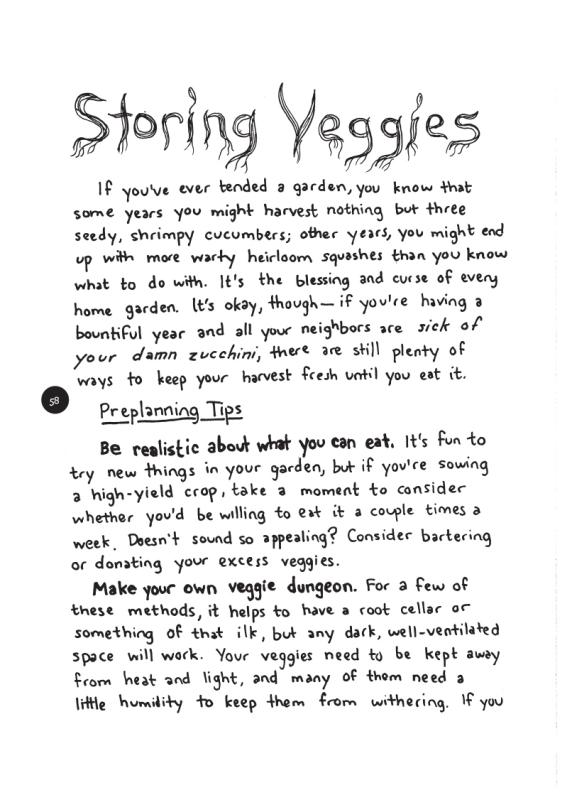 Storing Veggies
If you've ever tended a garden, you know that
some years you might harvest nothing but three
seedy, shrimpy cucumbers; other years, you might end
up with more warty heirloom squashes than you know
what to do with. It's the blessing and curse of every
home garden. It's okay, though—if you're having a
bountiful year and all your neighbors are sick of
your damn zucchini, there are still plenty of
ways to keep your harvest fresh until you eat it.
58
Preplanning Tips
Be realistic about what you can eat. It's fun to
try new things in your garden, but if you're sowing
a high-yield crop, take a moment to consider
whether you'd be willing to eat it a couple times a
week. Doesn't sound so appealing? Consider bartering
or donating your excess veggies.
Make your own veggie dungeon. For a few of
these methods, it helps to have a root cellar or
something of that ilk, but any dark, well-ventilated
space will work. Your veggies need to be kept away
from heat and light, and many of them need a
little humidity to keep them from withering. If you